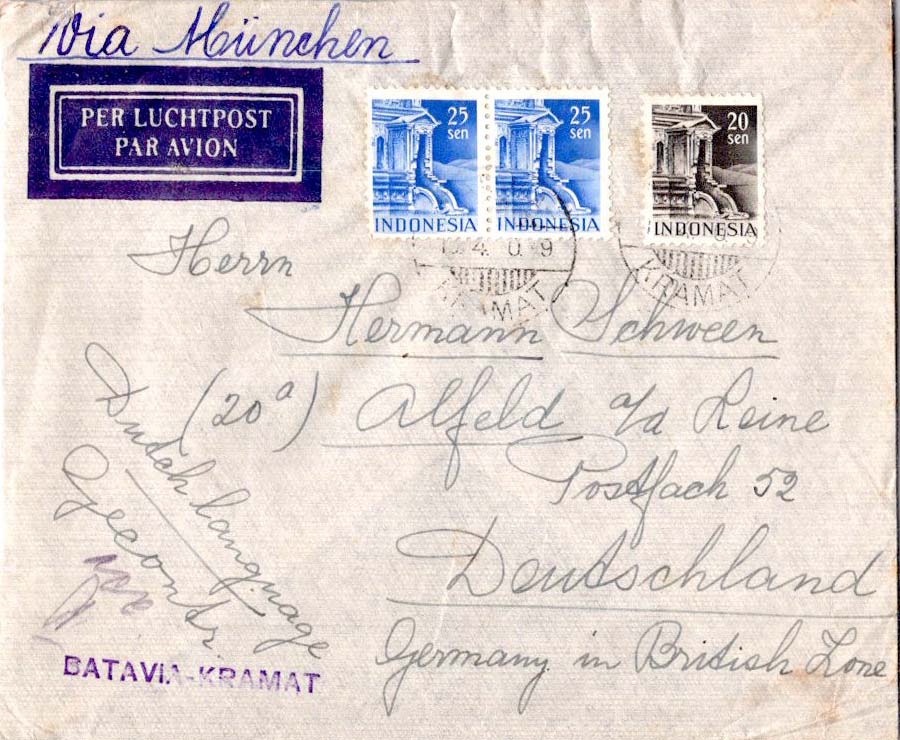 Via München
PER LUCHTPOST
PAR AVION
25
sen
INDONESIA
25
sen
INDONESIA
20
sen
INDONESIA
4. 0. 9
KRAMAT
Herrn
Hermann Schween
(20a) Alfeld a/d Leine
Postfach 52
Deutschland
Germany in British Zone
Dutch language
Gecontr.
BATAVIA-KRAMAT